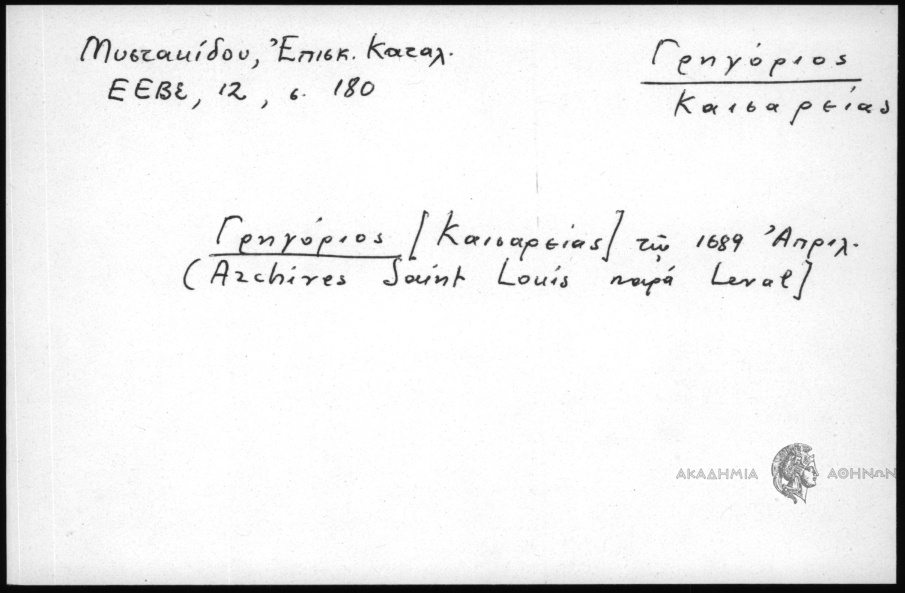 Μυστακίδου, Ἐπισκ. Καταλ.
ΕΕΒΣ, 12, σ. 180
Γρηγόριος
Καισαρείας
Γρηγόριος [Καισαρείας] τῷ 1689 Ἀπριλ.
(Archives Saint Louis παρά Leval]
ΑΚΑΔΗΜΙΑ ΑΘΗΝΩΝ